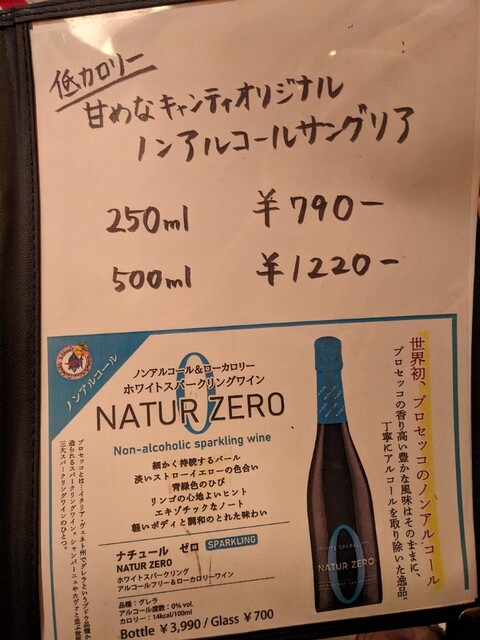 低カロリー
甘めなキャンティオリジナル
ノンアルコールサングリア
250ml ¥790-
500ml ¥1220-
ノンアルコール
ノンアルコール&ローカロリー
ホワイトスパークリングワイン
0
NATUR ZERO
Non-alcoholic sparkling wine
細かく持続するパール
淡いストローイエローの色合い
青緑色のひび
リンゴの心地よいヒント
エキゾチックなノート
軽いボディと調和のとれた味わい
ナチュール ゼロ SPARKLING
NATUR ZERO
ホワイトスパークリング
アルコールフリー&ローカロリーワイン
品種:グレラ
アルコール度数:0% vol.
カロリー:14kcal/100ml
Bottle ¥3,990 / Glass ¥700
世界初、プロセッコのノンアルコール
プロセッコの香り高い豊かな風味はそのままに、
丁寧にアルコールを取り除いた逸品。
プロセッコとは:イタリア・ヴェネト州でグレラというブドウ品種か
造られるスパークリングワイン。シャンパーニュやカヴァと並ぶ世界
三大スパークリングワインのひとつ。
0
NATUR ZERO